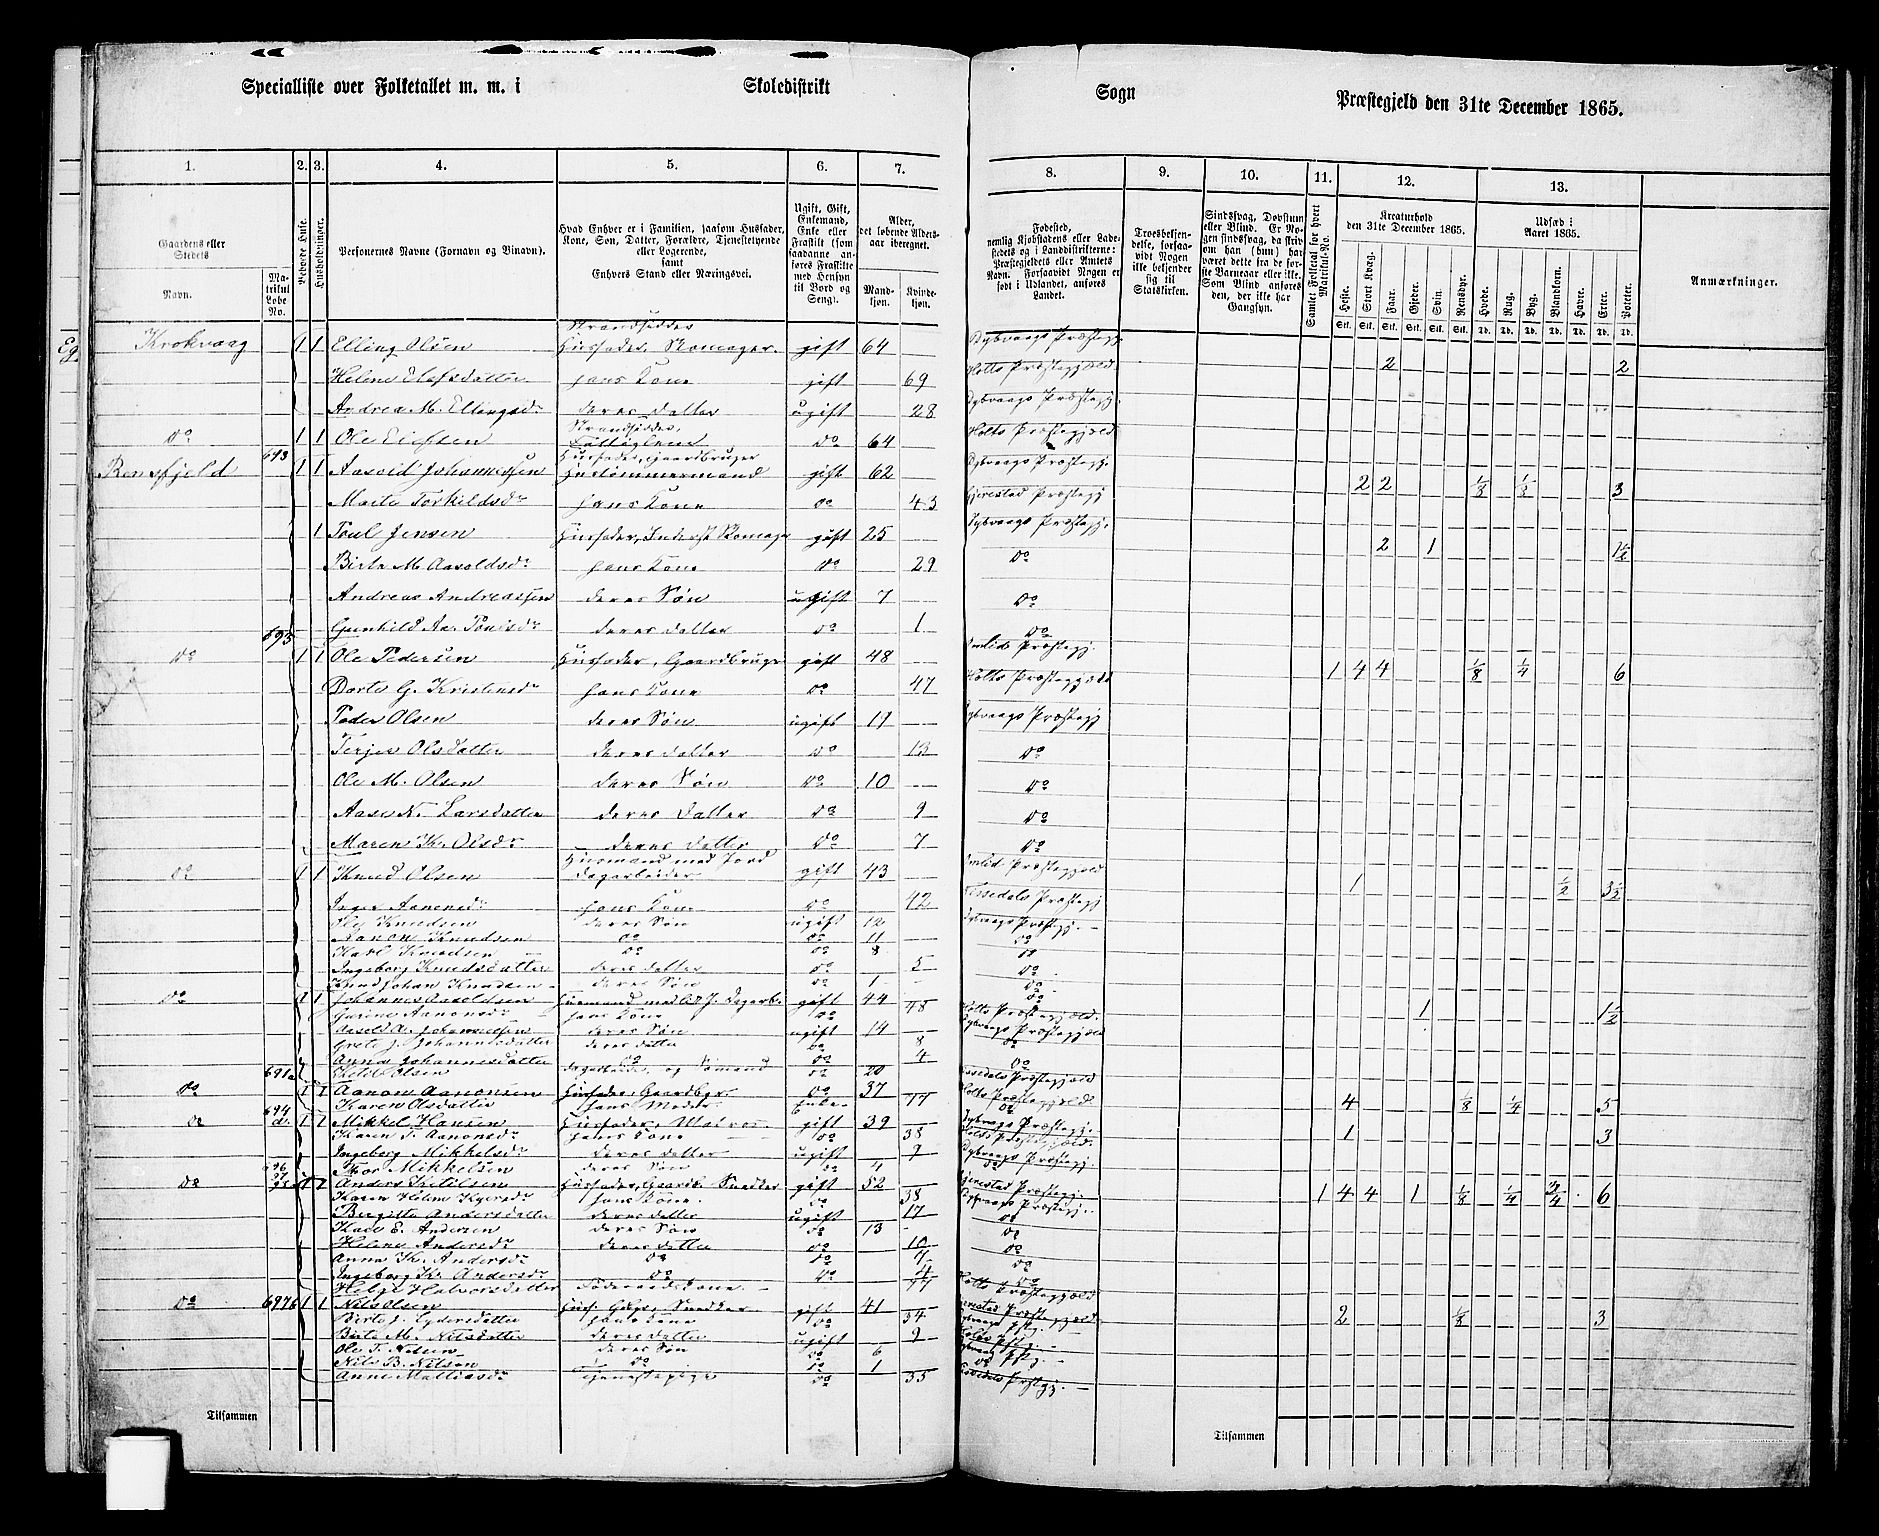 Specialliste over Folketallet m. m. i Skoledistrikt Sogn Præstegjeld den 31te December 1865.
1. 2. 3. 4. 5. 6. 7. 8. 9. 10. 11. 12. 13.
Gaardens eller Stedets Navn.
Matrikul Løbe No.
Beboede Huse.
Husholdninger.
Personernes Navne (Fornavn og Binavn).
Hvad Enhver er i Familien, saasom Husfader, Kone, Søn, Datter, Forældre, Tjenestetyende eller Logerende, samt Enhvers Stand eller Næringsvei.
Ugift, Gift, Enkemand, Enke eller Fraskilt (som saadanne anføres Fraskilte med Hensyn til Bord og Seng).
Alder, det løbende Alders-aar iberegnet.
Mandkjøn. Kvindekjøn.
Fødested, nemlig Kjøbstadens eller Ladestedets og i Landdistrikterne: Præstegjeldets eller Amtets Navn. Forsaavidt Nogen er født i Udlandet, anføres Landet.
Troesbekjendelse, forsaavidt Nogen ikke bekjender sig til Statskirken.
Sindssvag, Døvstum eller Blind. Er Nogen sindssvag, da skrives om han (hun) har været dette fra de første Barneaar eller ikke. Som Blind anføres den, der ikke har Gangsyn.
Samlet Folketal for hvert Matrikul-No.
Kreaturhold den 31te December 1865.
Heste. Stort Kvæg. Faar. Gjeder. Svin. Rensdyr.
Udsæd i Aaret 1865.
Hvede. Rug. Byg. Blandkorn. Havre. Erter. Poteter.
Anmærkninger.
Krokvaag 1 1 Elling Olsen Strandsidder Husfader, Skomager. gift 64 Dybvaags Præstegj.
Helene Olefsdatter hans Kone gift 69 Holts Præstegjæld 2 2
Andrea M. Ellingsdr deres datter ugift 28 Dybvaags Præstegj.
do 1 1 Ole Strandsidder, do 64 Holts Præstegjæld
Rensfjeld 693 1 1 Aasold Johannessen Husfader, Gaardbruger gift 62 Dybvaags Præstegj.
Marte Torkildsdr hans Kone do 43 Gjerestad Præstegj 2 2 1/8 1/2 3
1 Poul Jensen Husfader, Inderst Skomager gift 25 Dybvaags Præstegj.
Birte M. Aasoldsdr hans Kone do 29 do 2 1 1 1/2
Andreas Andreassen deres Søn ugift 7 do
Gunhild Aa. deres datter do 1 do
do 695 1 1 Ole Pedersen Husfader, Gaardbruger gift 48 Præstegj.
Dorte G. Kristensdr hans Kone do 47 Holts Præstegjæld 1 4 4 1/8 1/4 6
Peder Olsen deres Søn ugift Dybvaags Præstegj
Terjes Olsdatter deres datter do 13 do
Ole M. Olsen deres Søn do 10 do
Aase Larsdatter deres datter do 9 do
Maren Kr. Olsdr deres datter do 7 do
do 1 1 Knud Olsen Husmand med Jord dagarbeider gift 43 Præstegjæld
Inger Aanonsdr hans Kone do 42 Præstegj 1 1/2 3 1/2
Knudsen deres Søn ugift 12 Dybvaags Præstegj.
Aanon Knudsen do do 11 do
Karl Knudsen do do 8 do
Ingeborg Knudsdatter deres datter do 5 do
Knud Johan Knudsen deres Søn do 1 do
do 1 1 Johannes Aasoldsen Husmand med gift 44 do
Aanonsdr hans Kone do 48 Holts Præstegjæld. 1 1 1/2
Aasold A. Johannessen deres Søn ugift 14 Dybvaags Præstegjæld
Grete J. Johannesdatter deres datter do 8 do
Anna Johannesdatter do do 4 do
Ketil Olsen og Sømand do 20 Præstegjæld
do 691a 1 1 Aanon Aanonsen Husfader, Gaardbr. do 37 Holts Præstegjæld
Karen Olsdatter hans Moder Enke 77 do 4 1/8 1/4 5
do 694 1 1 Mikkel Hansen Husfader gift 39 Dybvaags Præstegj.
Karen T. Aanonsdr hans Kone do 38 Holts Præstegjæld. 1 3
Ingeborg Mikkelsdr deres datter ugift 9 Dybvaags Præstegj.
Mikkelsen deres Søn do 4 do
do 696 1 1 Anders Ketilsen Husfader, Gaardb. Snedker gift 52 Gjerestad Præstegj.
Karen Helene hans Kone do 38 Dybvaags Præstegj. 1 4 4 1 1/8 1/4 3/4 6
Bergitte Andersdatter deres datter ugift 17 do
E. Andersen deres Søn do 13 do
Helene Andersdr deres datter do 10 do
Anna Kr. Andersdr do do 7 do
Ingeborg Kr. Andersdr do do 4 do
Helje Halvorsdatter Føderaadskone 77 Holts Præstegjæld
do 697b 1 1 Nils Olsen Husf. Snedker gift 41 Gjerestad Præstegjæld
Birte J. hans Kone do 34 Dybvaags 2 1/8 3
Birte M. Nilsdatter deres datter ugift 9 Holts
Ole T. Nilsen deres Søn do 6 Dybvaags
Nils B. Nilsen do do 1 do
Anne Mattiasdr Tjenestepige do 55 Præstegj.
Tilsammen
Tilsammen